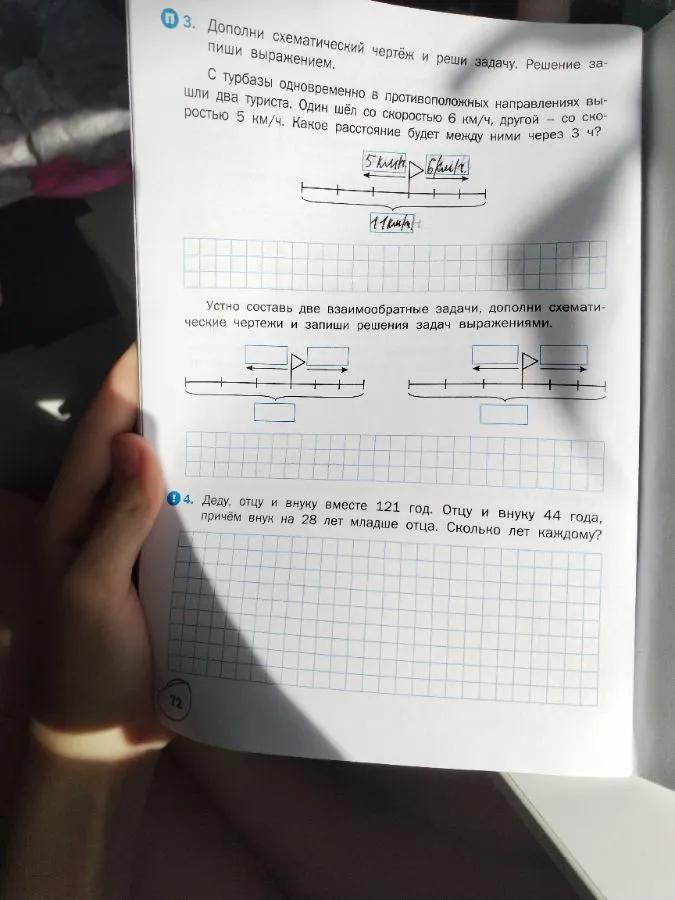 П 3. Дополни схематический чертёж и реши задачу. Решение за-
пиши выражением.
С турбазы одновременно в противоположных направлениях вы-
шли два туриста. Один шёл со скоростью 6 км/ч, другой – со ско-
ростью 5 км/ч. Какое расстояние будет между ними через 3 ч?
5 км/ч. 6 км/ч.
11 км/ч
Устно составь две взаимообратные задачи, дополни схемати-
ческие чертежи и запиши решения задач выражениями.
! 4. Деду, отцу и внуку вместе 121 год. Отцу и внуку 44 года,
причём внук на 28 лет младше отца. Сколько лет каждому?
72